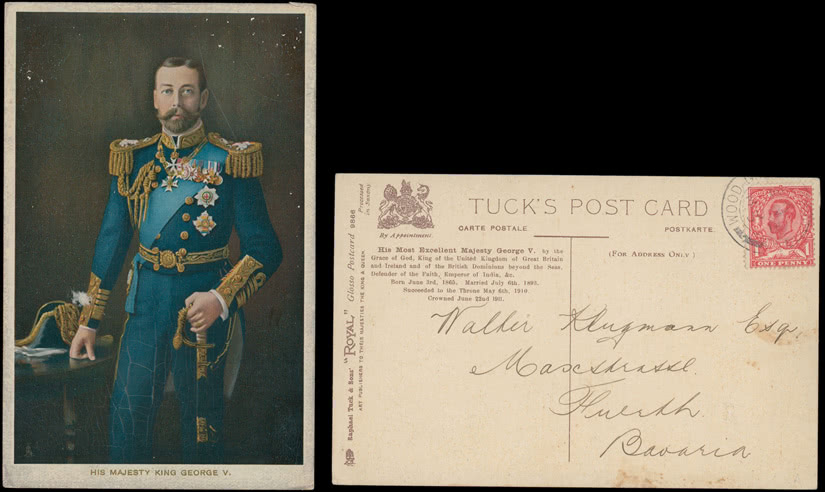 HIS MAJESTY KING GEORGE V.
Raphael Tuck & Sons' "ROYAL" Glosso Postcard 9866
ART PUBLISHERS TO THEIR MAJESTIES THE KING & QUEEN
Processed in Saxony
By Appointment.
TUCK'S POST CARD
CARTE POSTALE POSTKARTE.
His Most Excellent Majesty George V. by the
Grace of God, King of the United Kingdom of Great Britain
and Ireland and of the British Dominions beyond the Seas,
Defender of the Faith, Emperor of India, &c.
Born June 3rd, 1865. Married July 6th, 1893.
Succeeded to the Throne May 6th, 1910.
Crowned June 22nd 1911.
(FOR ADDRESS ONLY)
WOOD
1 1
ONE PENNY
Walter Klugmann Esq.
Maxstrasse
Fuerth
Bavaria